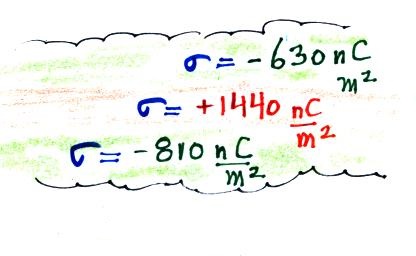 σ = -630 nC/m²
σ = +1440 nC/m²
σ = -810 nC/m²